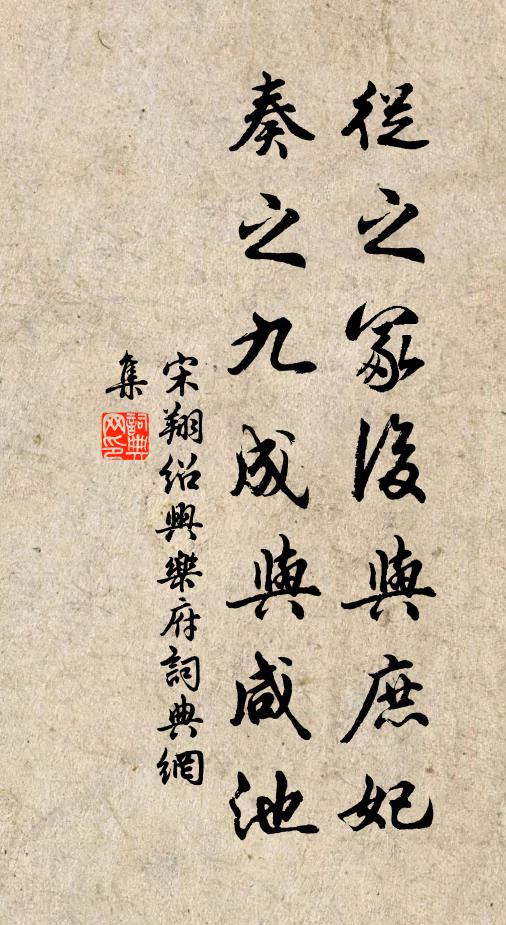 從之冢後與庶妃
奏之九成與咸池
宋翔紹興樂府詞典網
集
詞典網印